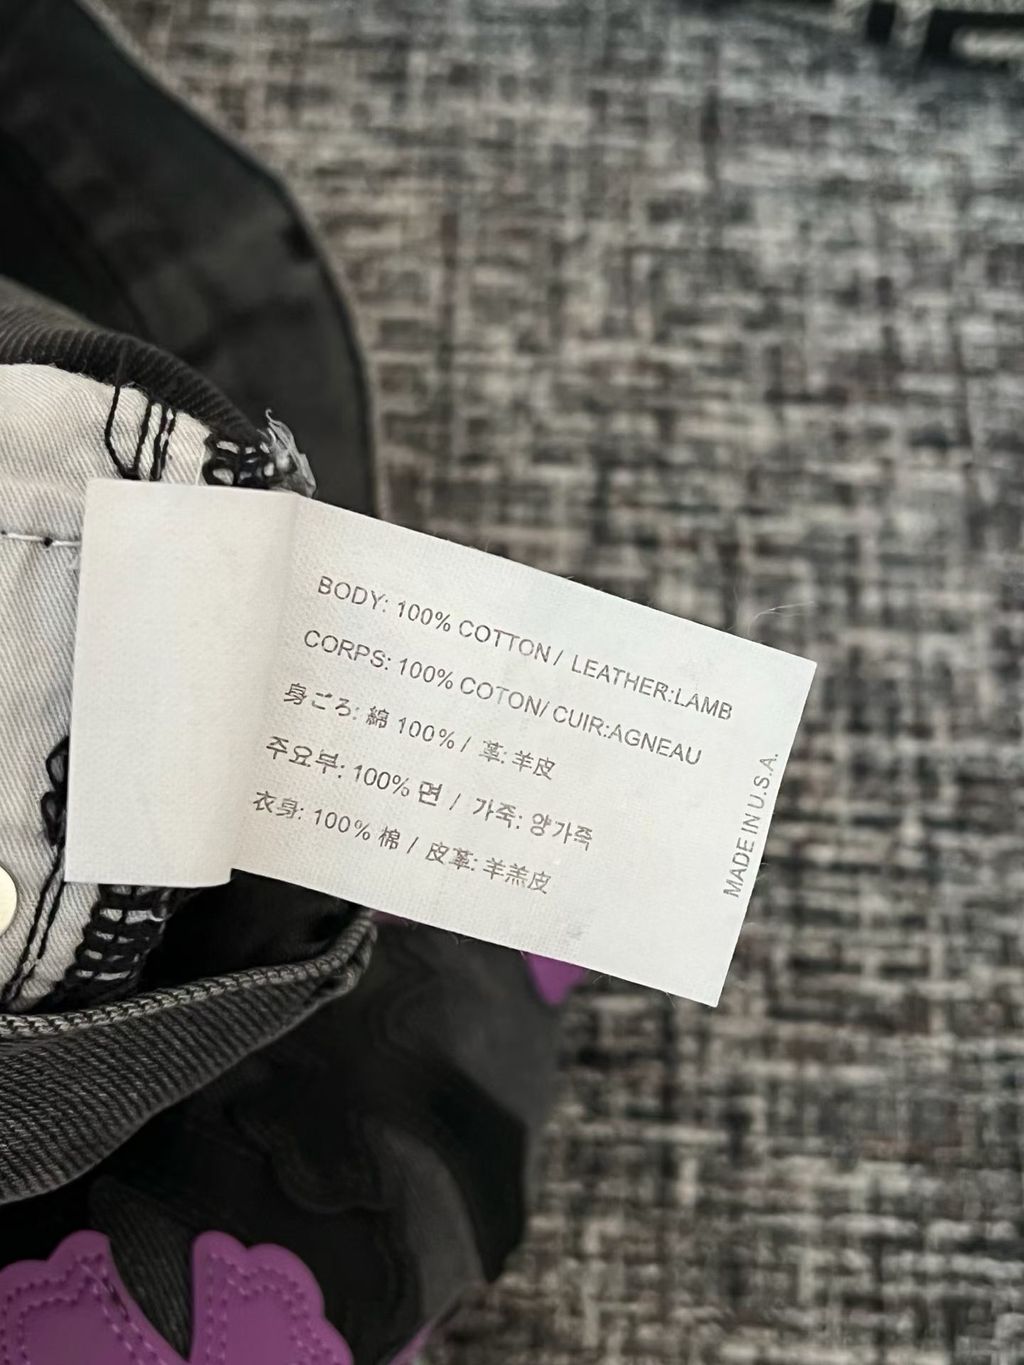 BODY: 100% COTTON / LEATHER:LAMB
CORPS: 100% COTON/ CUIR:AGNEAU
身ごろ: 綿 100% / 革: 羊皮
주요부: 100% 면 / 가죽: 양가죽
衣身: 100% 棉 / 皮革: 羊羔皮
MADE IN U.S.A.